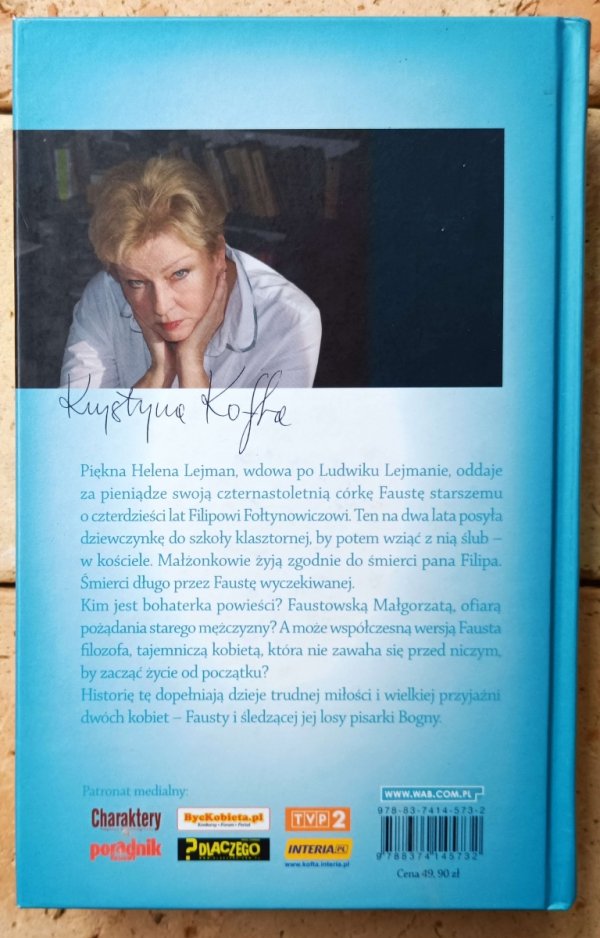 Krystyna Kofta
Piękna Helena Lejman, wdowa po Ludwiku Lejmanie, oddaje
za pieniądze swoją czternastoletnią córkę Faustę starszemu
o czterdzieści lat Filipowi Fołtynowiczowi. Ten na dwa lata posyła
dziewczynkę do szkoły klasztornej, by potem wziąć z nią ślub –
w kościele. Małżonkowie żyją zgodnie do śmierci pana Filipa.
Śmierci długo przez Faustę wyczekiwanej.
Kim jest bohaterka powieści? Faustowską Małgorzatą, ofiarą
pożądania starego mężczyzny? A może współczesną wersją Fausta
filozofa, tajemniczą kobietą, która nie zawaha się przed niczym,
by zacząć życie od początku?
Historię tę dopełniają dzieje trudnej miłości i wielkiej przyjaźni
dwóch kobiet – Fausty i śledzącej jej losy pisarki Bogny.
Patronat medialny:
Charaktery
BycKobieta.pl
TVP2
poradnik
?DLACZEGO
INTERIA.PL
www.kofta.interia.pl
WWW.WAB.COM.PL
978-83-7414-573-2
9788374145732
Cena 49, 90 zł